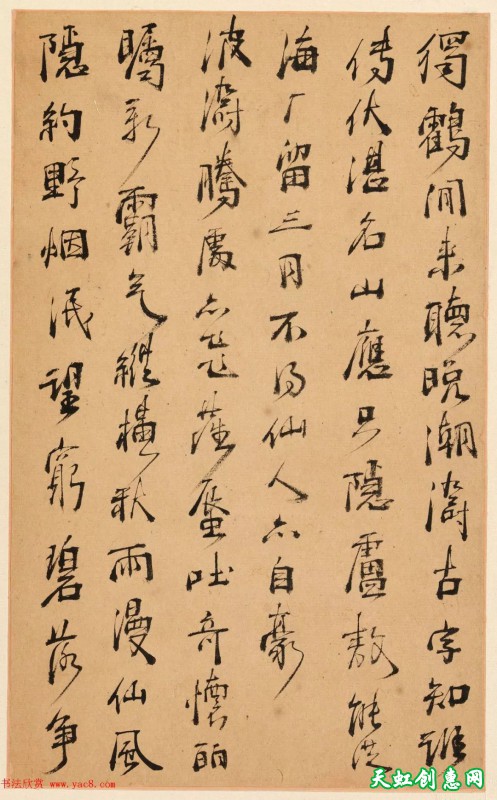 獨鶴閒来聽晚潮濤古字知誰
传伏湛名山應只隱盧敖能從
海厂留三月不为仙人亦自豪
波濤騰處亦蓬蜃吐奇懷酾
矚新霸气縱橫秋雨漫仙風
隱約野烟泯望窮碧落争
书法欣赏 www.yac8.com
天虹创意网